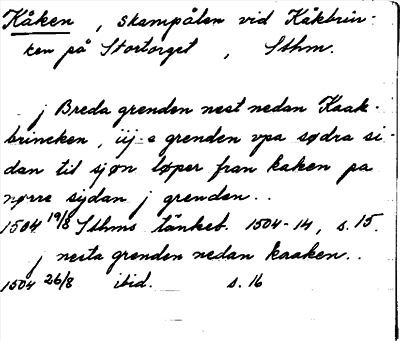 Kåken, skampålen vid Kåkbrin-
ken på Stortorget, Sthm.
j Breda grenden nest nedan Kaak-
brincken, iij e grenden vpa södra si-
dan til sjøn løper fran kaken pa
nørre sijdan j grenden..
1504 19/8 Sthms tänkeb. 1504-14, s. 15.
j nesta grenden nedan kaaken..
1504 26/8 ibid. s. 16